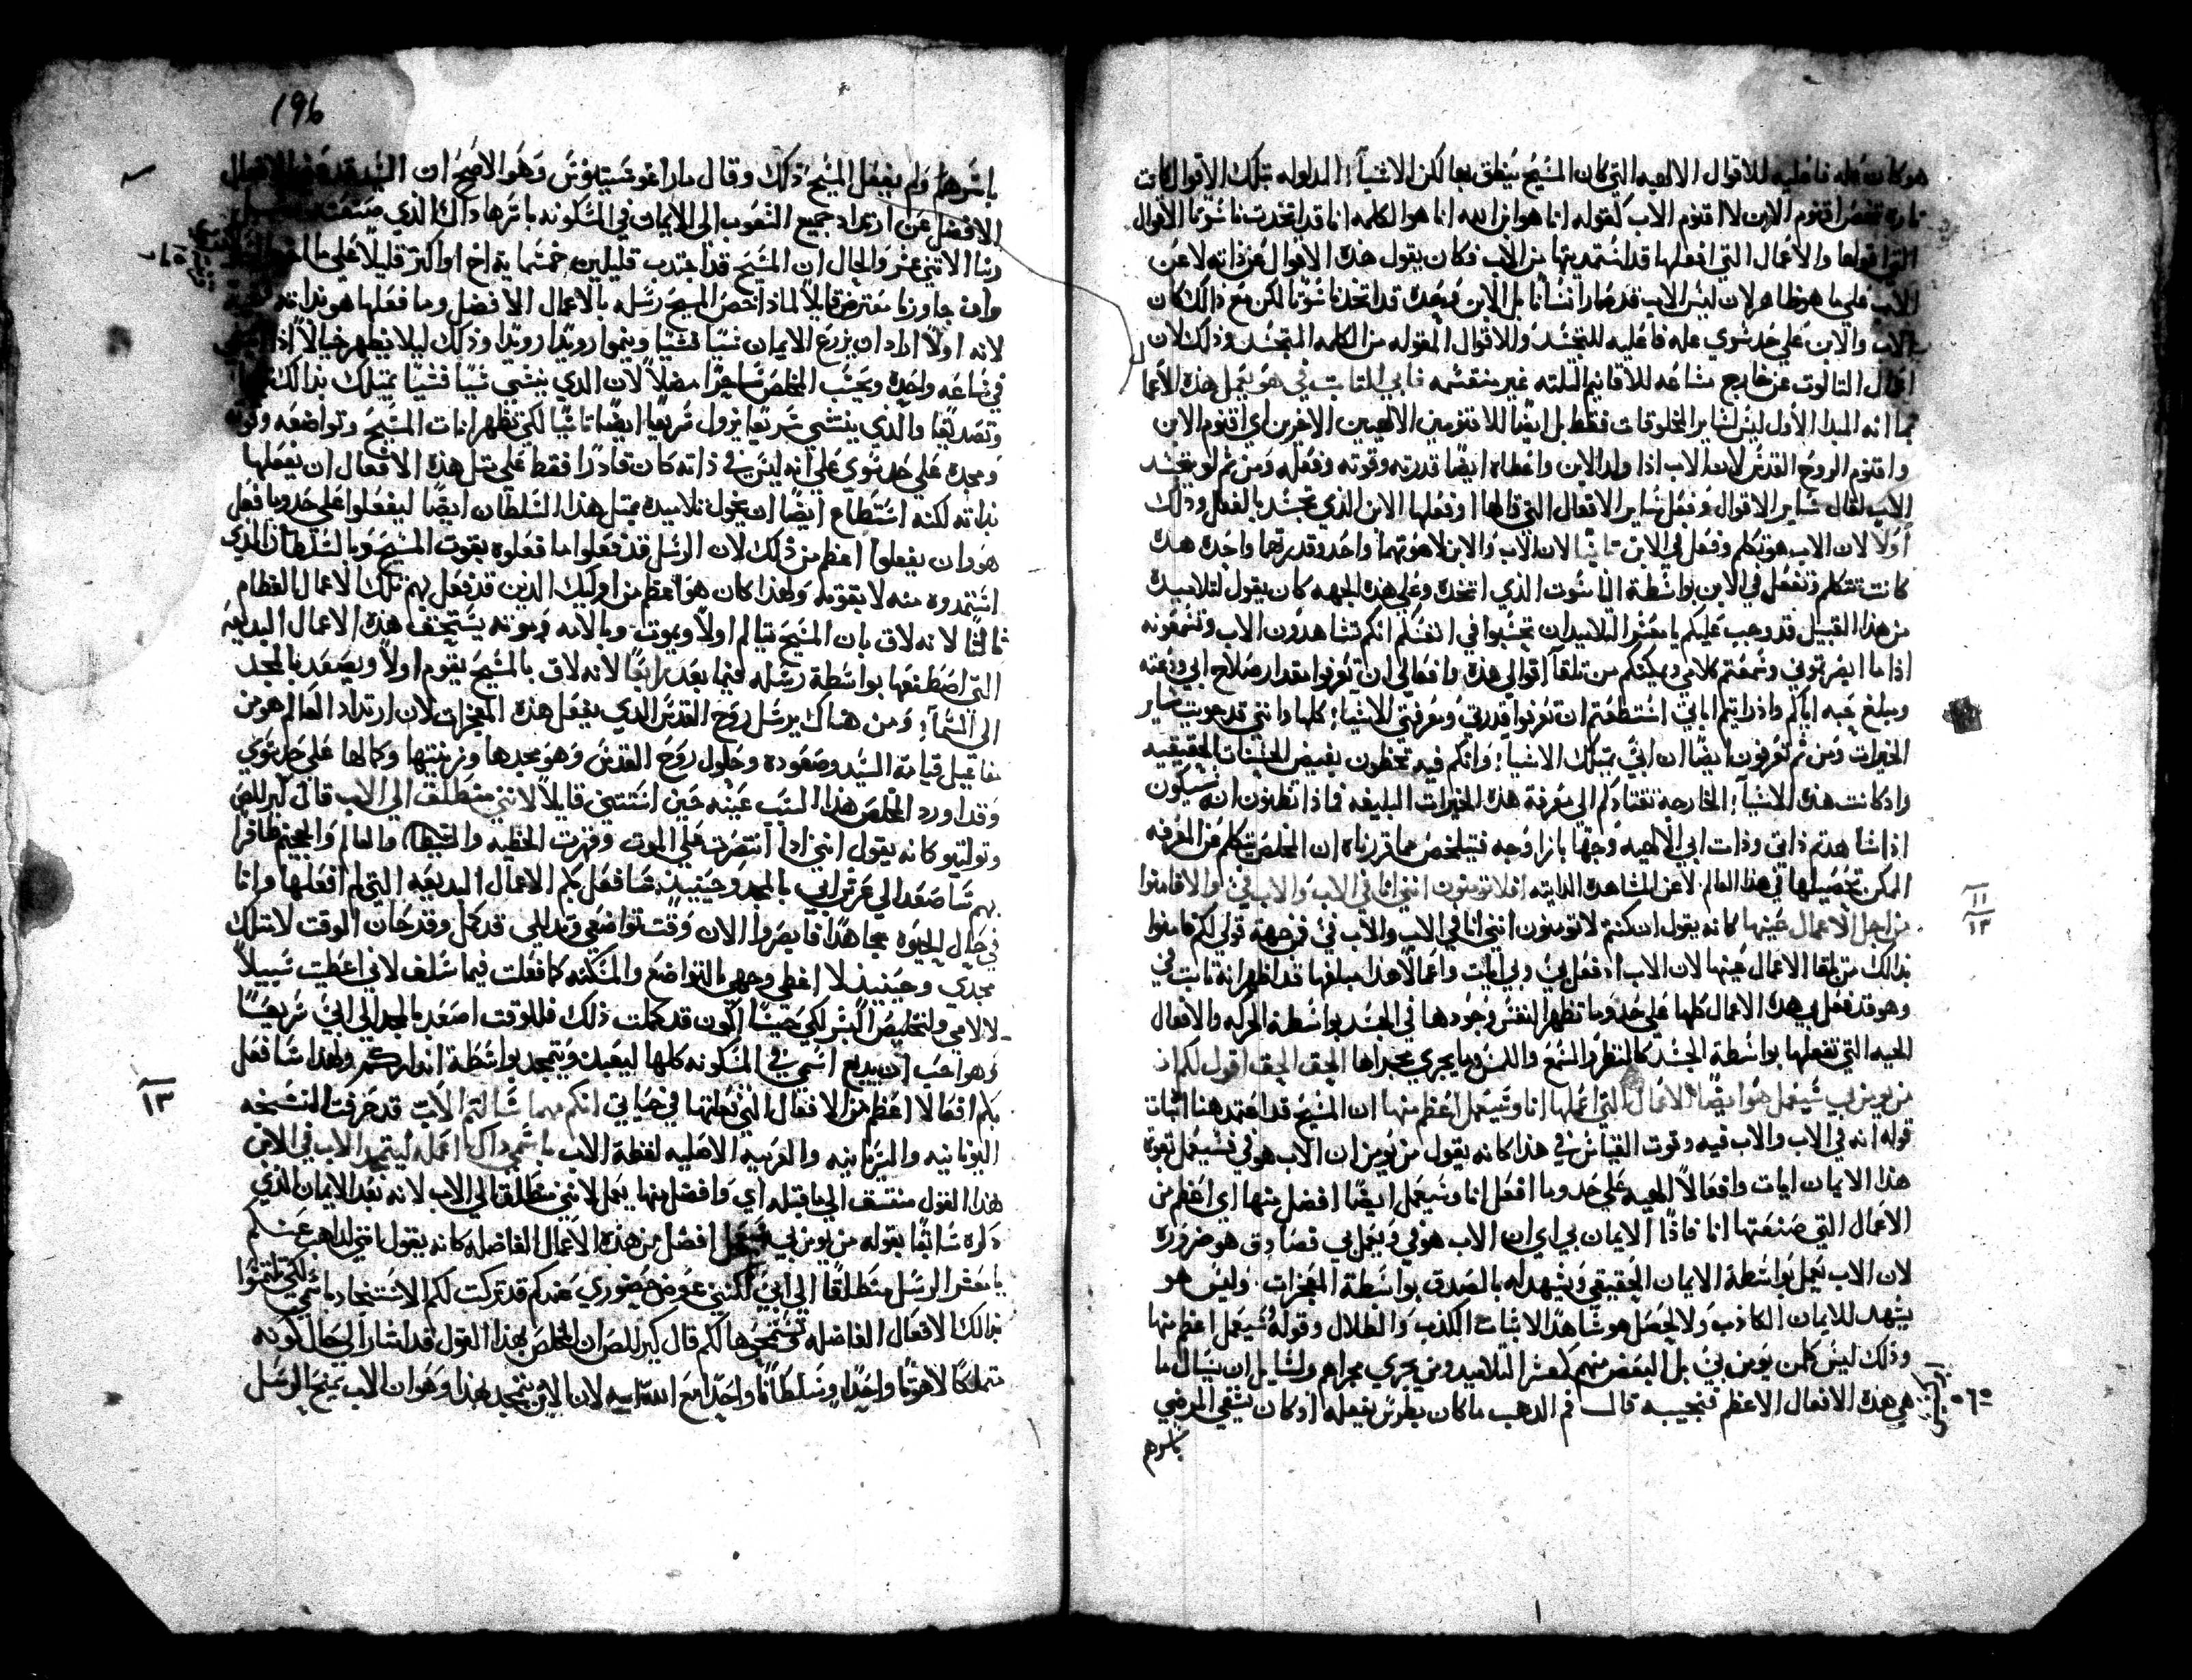 هو كان عله فاعليه للاقوال الالهيه التي كان المسيح ينطق بها لكن الاشيآء المدلوله بتلك الاقوال كانت
تاره تخص اقنوم الابن لا اقنوم الاب كقوله انا هو ابن الله انا هو الكلمه انا قد اتخدت ناسوتا الاقوال
التي اقولها والاعمال التي افعلها قد استمديتها من الاب فكان يقول هذه الاقوال عن ذاته لا عن
الاب علي ما هو ظاهر لان ليس الاب قد صار انسانا بل الابن وحده قد اتخد ناسوتا لكن مع ذالك كان
الاب والابن علي حد سوي عله فاعليه للتجسد وللاقوال المقوله من الكلمه المتجسد وذلك لان
اعمال التالوت عن خارج مشاعه للاقانيم التلته غير منقسمه فابي التابت في هو يعمل هذه الاعما
بما انه المبدا الاول ليس لساير المخلوقات فقط بل ايضا للاقنومين الالهيين الاخرين اي اقنوم الابن
واقنوم الروح القدس لان الاب اذا ولد الابن واعطاه ايضا قدرته وقوته وفعله ومن ثم لو تجسد
الاب لقال ساير الاقوال وفعل ساير الافعال التي قالها وفعلها الابن الذي تجسد بالفعل وذلك
اولا لان الاب هو تكلم وفعل في الابن تانيا لان الاب والابن لاهوتهما واحد وقدرتهما واحده هده
كانت تتكلم وتفعل في الابن بواسطة الناسوت الذي اتخده وعلي هذه الجهه كان يقول لتلاميده
من هذا القبيل قد وجب عليكم يا معشر التلاميد ان تحسبوا في انفسكم انكم تشاهدون الاب وتسمعونه
اذا ما ابصرتموني وسمعتم كلامي ويمكنكم من تلقآ اقوالي هذه وافعالي ان تعرفوا مقدار صلاح ابي ودعته
ومبلغ حبه اياكم واذ رايتم اياتي استطعتم ان تعرفوا قدرتي ومعرفتي للاشيآء كلها وانني قد حويت ساير
الخيرات ومن ثم تعرفون ايضا ان ابي يمتلك الاشيآء وانكم فيه تحظون بفيض الحسنات الحقيقيه
واد كانت هذه الاشيآء الخارجه تقتادكم الي معرفة هذه الخيرات البليغه فماذا تظنون انه سيكون
اذا شاهدتم ذاتي وذات ابي الالهيه وجها بازا وجه فيتلخص مما قررناه ان المخلص يتكلم عن المعرفه
الممكن تحصيلها في هذا العالم لا عن المشاهده الداتيه افلا تومنون انني انا في الاب والاب في والا فامنوا
من اجل الاعمال عينها كانه يقول ان كنتم لا تومنون انني انا في الاب والاب في من جهة قولي لكم فامنوا
بذالك من تلقا الاعمال عينها لان الاب اد فعل بي وبي ايات واعمالا هذا مبلغها قد اظهر انه تابت في
وهو قد فعل بي هده الاعمال كلها علي حد وما تظهر النفس وجودها في الجسد بواسطة الحركه والافعال
الحيه التي تفعلها بواسطة الجسد كالنظر والسمع واللمس وما يجري مجراها الحق الحق اقول لكم ان
من يومن بي سيعمل هو ايضا الاعمال التي اعملها انا وسيعمل اعظم منها ان المسيح قد اعتمد هنا اتبات
قوله انه في الاب والاب فيه وقوت القياس في هذا كانه يقول من يومن ان الاب هو في فسيعمل بقوة
هذا الايمان ايات وافعالا الهيه علي حد وما افعل انا وسيعمل ايضا افضل منها اي اعظم من
الاعمال التي صنعتها انا فاذا الايمان بي اي ان الاب هو في ويعمل بي فصادق هو ضروره
لان الاب يعمل بواسطة الايمان الحقيقي ويشهد له بالصدق بواسطة المعجزات وليس هو
يشهد للايمان الكاذب ولا يحصل هو شاهدا لاتبات الكذب والظلال وقوله سيعمل اعظم منها
وذلك ليس كلمن يومن بي بل البعض منهم كمعشر التلاميد ومن يجري مجراهم ولسايل ان يسال ما
هي هذه الافعال الاعظم فنجيبه قال فم الدهب ما كان بطرس يفعله اذ كان يشفي المرضي
باسرهم
١١
١٢
196
باسرهم ولم يفعل المسيح ذلك وقال ماراغوسيتنوس وهو الاصح ان السيد قد الافعال
الافضل عن ارتداد جميع الشعوب الي الايمان في المسكونه باسرها داك الذي صنعته
ربنا الاتني عشر والحال ان المسيح قد اجتدب قليلين خمسمايه اخ او اكتر قليلا علي ما
وان جاوزنا معترض قايلا لماذا خصص المسيح رسله بالاعمال الافضل وما فعلها هو بذاته
لانه اولا اراد ان يزرع الايمان شيا فشيا وينموا رويدا رويدا وذلك ليلا يظهر خيالا اذا
في ساعه واحده ويحسب المخلص ساحرا مضلا لان الذي ينشي شيا فشيا يمتلك بذالك
وتصديقا والذي ينتشي سريعا يزول سريعا ايضا تانيا لكي تظهر ايات المسيح وتواضعه وقوته
ومجده علي حد سوي علي انه ليس في ذاته كان قادرا فقط علي متل هذه الافعال ان يفعلها
بداته لكنه استطاع ايضا ان يخول تلاميده بمتل هذا السلطان ايضا ليفعلوا علي حد وما فعل
هو وان يفعلوا اعظم من ذلك لان الرسل قد فعلوا ما فعلوه بقوت المسيح وبالسلطان الذي
استمدوه منه لا بقوتهم ولهذا كان هو اعظم من اوليك الدين قد فعل بهم تلك الاعمال العظام
تالتا لانه لاق بان المسيح يتالم اولا ويموت وبالامه وموته يستحق هذه الاعمال البديعه
التي اصطنعها بواسطة رسله فيما بعد رابعا لانه لاق بالمسيح يقوم اولا ويصعد بالمجد
الي السمآء ومن هناك يرسل روح القدس الدي يفعل هذه المعجزات لان ارتداد العالم هو من
مفاعيل قيامة السيد وصعوده وحلول روح القدس وهو مجدها وزينتها وكمالها علي حد سوي
وقد اورد المخلص هذا السبب عينه حين استتني قايلا لانني منطلق الي الاب قال كيرللص
وتوليتو كانه يقول انني اذا انتصرت علي الموت وقهرت الخطيه والشيطان والعالم والجحيم ظافرا
بهم سا صعد الي عرش ابي بالمجد وحينيذ سافعل بكم الاعمال البديعه التي لم افعلها وانا
في حال الحيوه مجاهدا فابصروا الان وقت تواضعي وتدللي قد كمل وقد حان الوقت لامتلك
مجدي وحينيذ لا اغطي وجهي بالتواضع والمسكنه كما فعلت فيما سلف لاني اعطيت سبيلا
لالامي ولتخليص البشر لكي حيتما اكون قد كملت ذلك فللوقت اصعد بالمجد الي ابي سريعا
وهو احب ان يديع اسمي في المسكونه كلها ليعبد ويتمجد بواسطة انداركم ولهذا سافعل
بكم افعالا اعظم من الافعال التي فعلتها في حياتي انكم مهما سالتم الاب قد حرفت النسخه
اليونانيه والسريانيه والعربيه الاصليه لفظة الاب باسمي داك اعمله ليتمجد الاب في الابن
هذا القول متسق الي ما قبله اي وافضل منها يعمل لانني منطلق الي الاب لانه بعد الايمان الذي
دكره سابقا بقوله من يومن بي سيعمل افضل من هذه الاعمال الفاضله كانه يقول انني لداهب عنكم
يا معشر الرسل منطلقا الي ابي لكنني عوض حضوري عندكم قد تركت لكم الاستنجاد باسمي لكي تلتمسوا
بدالك الافعال الفاضله وسنمنحها لكم قال كيرللص ان المخلص بهذا القول قد اشار الي حال كونه
متملكا لاهوتا واحدا وسلطانا واحدا مع الله ابيه لان الابن يتمجد بهذا وهو ان الاب يمنح الرسل
١٣